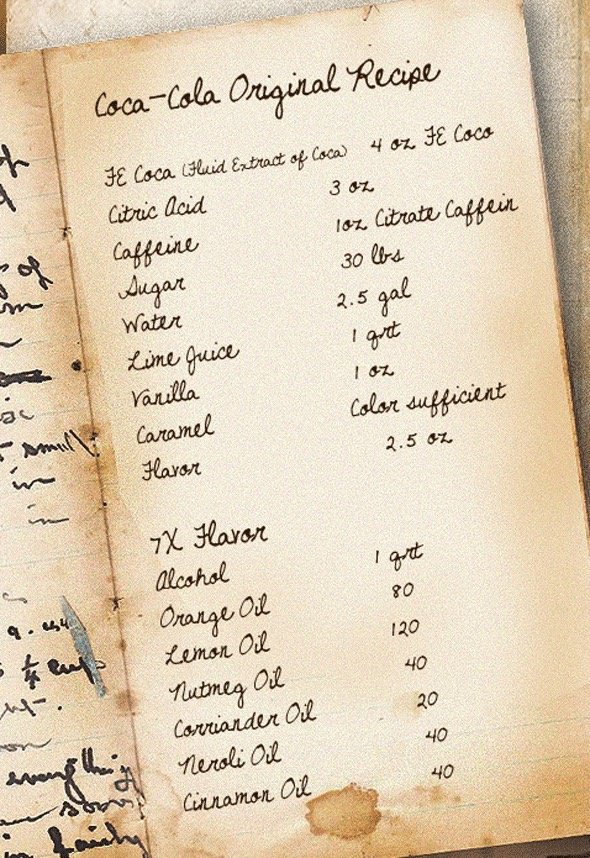 of
small
in
in
1/4 cup
everything
in fairly
Coca-Cola Original Recipe
FE Coca (Fluid Extract of Coca) 4 oz FE Coco
Citric Acid 3 oz
Caffeine 1oz Citrate Caffein
Sugar 30 lbs
Water 2.5 gal
Lime Juice 1 qrt
Vanilla 1 oz
Caramel Color sufficient
Flavor 2.5 oz
7X Flavor
Alcohol 1 qrt
Orange Oil 80
Lemon Oil 120
Nutmeg Oil 40
Corriander Oil 20
Neroli Oil 40
Cinnamon Oil 40